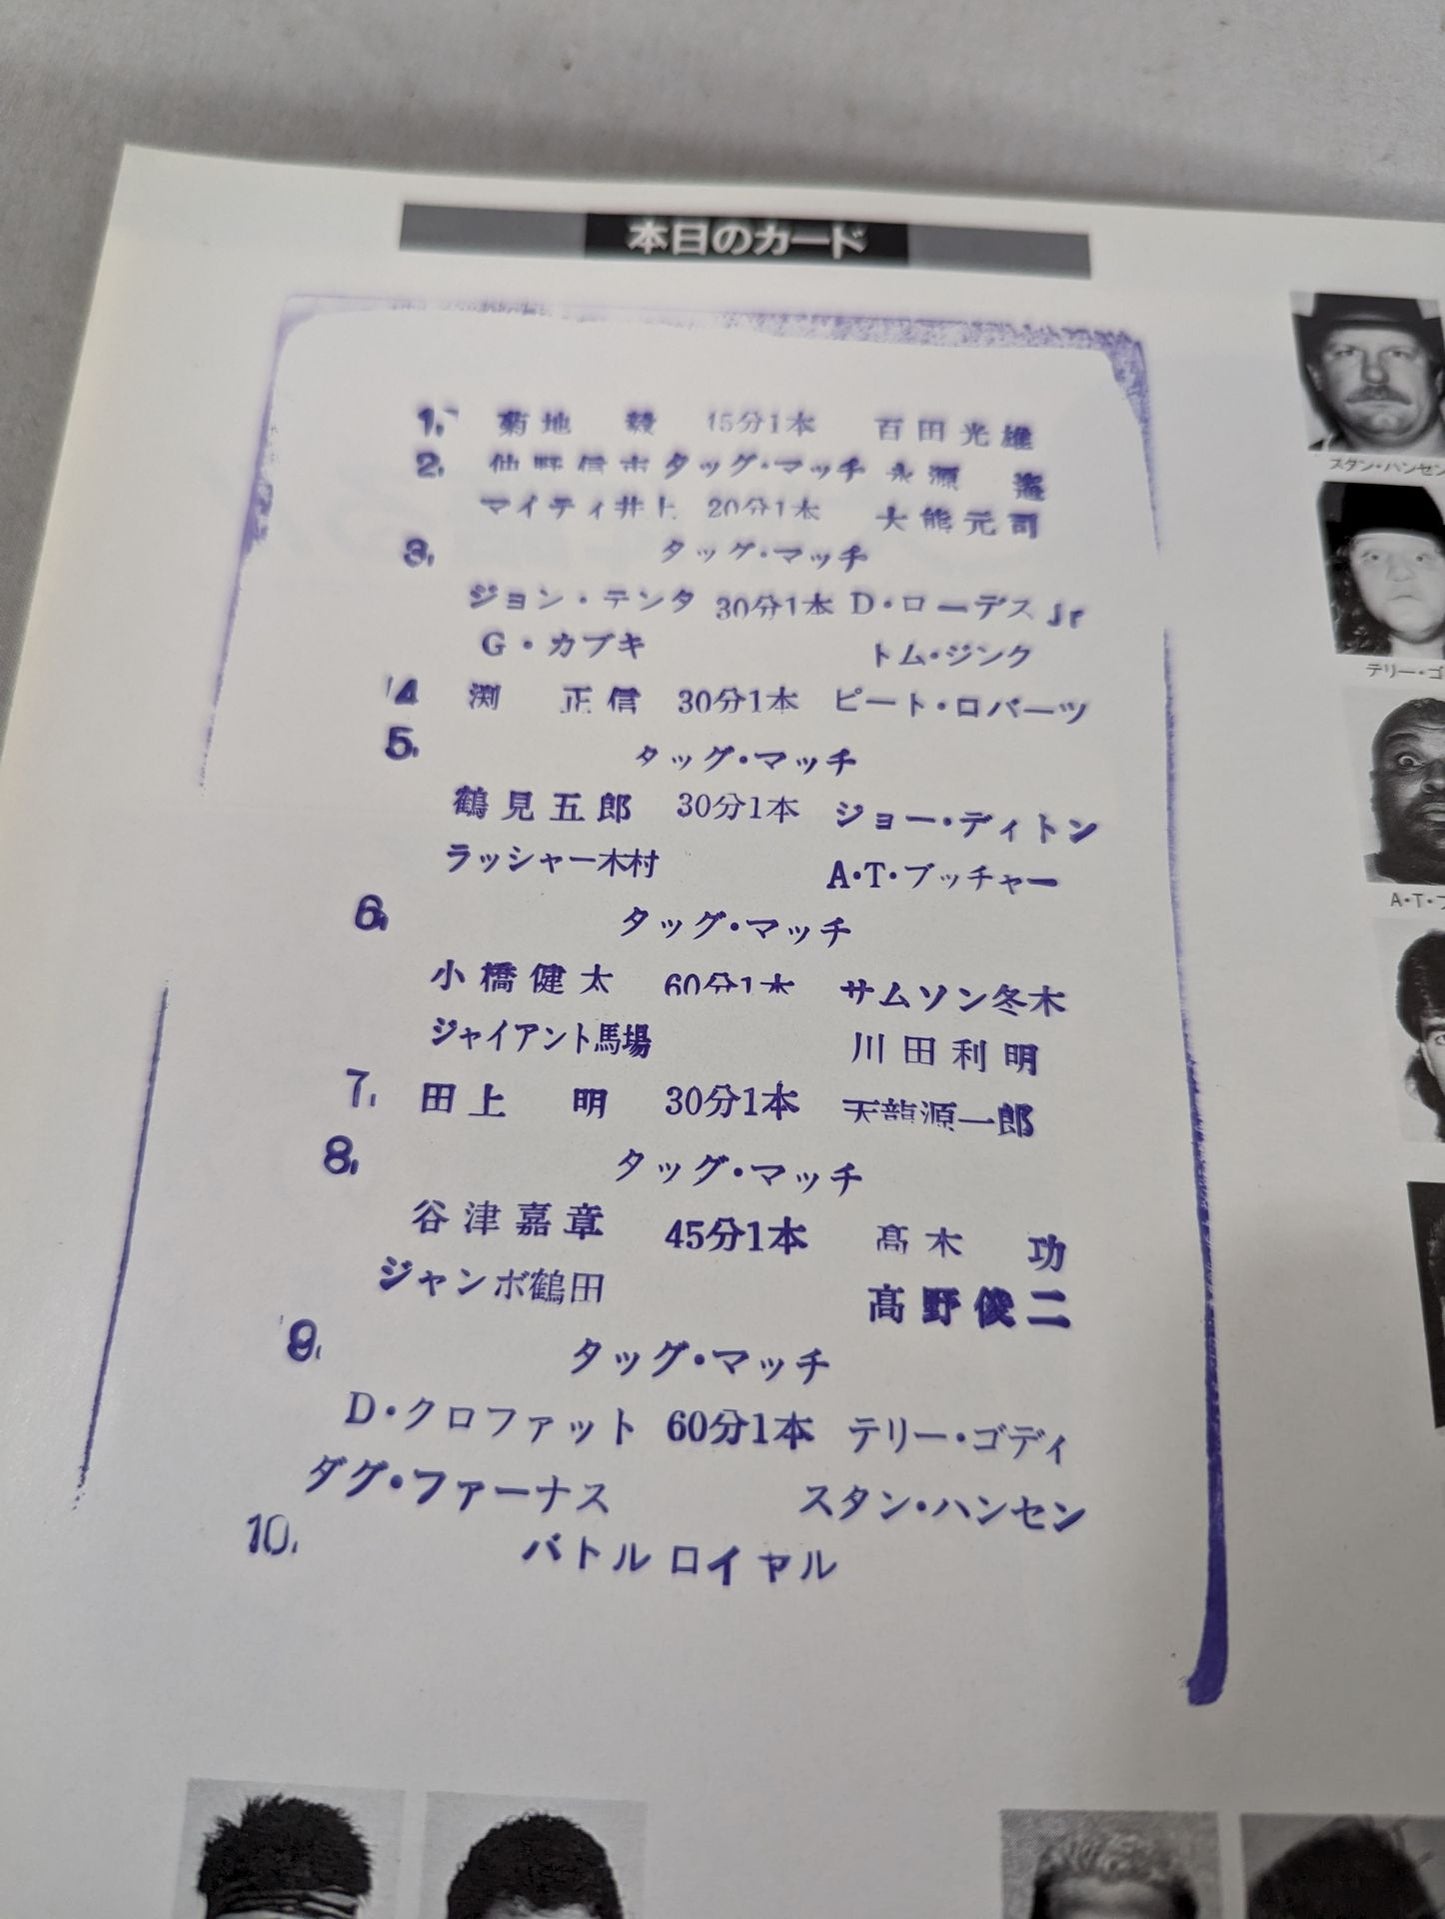 本日のカード
1. 菊地 毅 15分1本 百田光雄
2. 仙野信市 タッグ・マッチ 永源 遙
マイティ井上 20分1本 大熊元司
3. タッグ・マッチ
ジョン・テンタ 30分1本 D・ローデスJr
G・カブキ トム・ジンク
4 渕 正信 30分1本 ピート・ロバーツ
5. タッグ・マッチ
鶴見五郎 30分1本 ジョー・ディトン
ラッシャー木村 A・T・ブッチャー
6. タッグ・マッチ
小橋健太 60分1本 サムソン冬木
ジャイアント馬場 川田利明
7. 田上 明 30分1本 天龍源一郎
8. タッグ・マッチ
谷津嘉章 45分1本 高木 功
ジャンボ鶴田 高野俊二
9. タッグ・マッチ
D・クロファット 60分1本 テリー・ゴディ
ダグ・ファーナス スタン・ハンセン
10. バトルロイヤル
スタン・ハンセン
テリー・ゴ
A・T・ブ